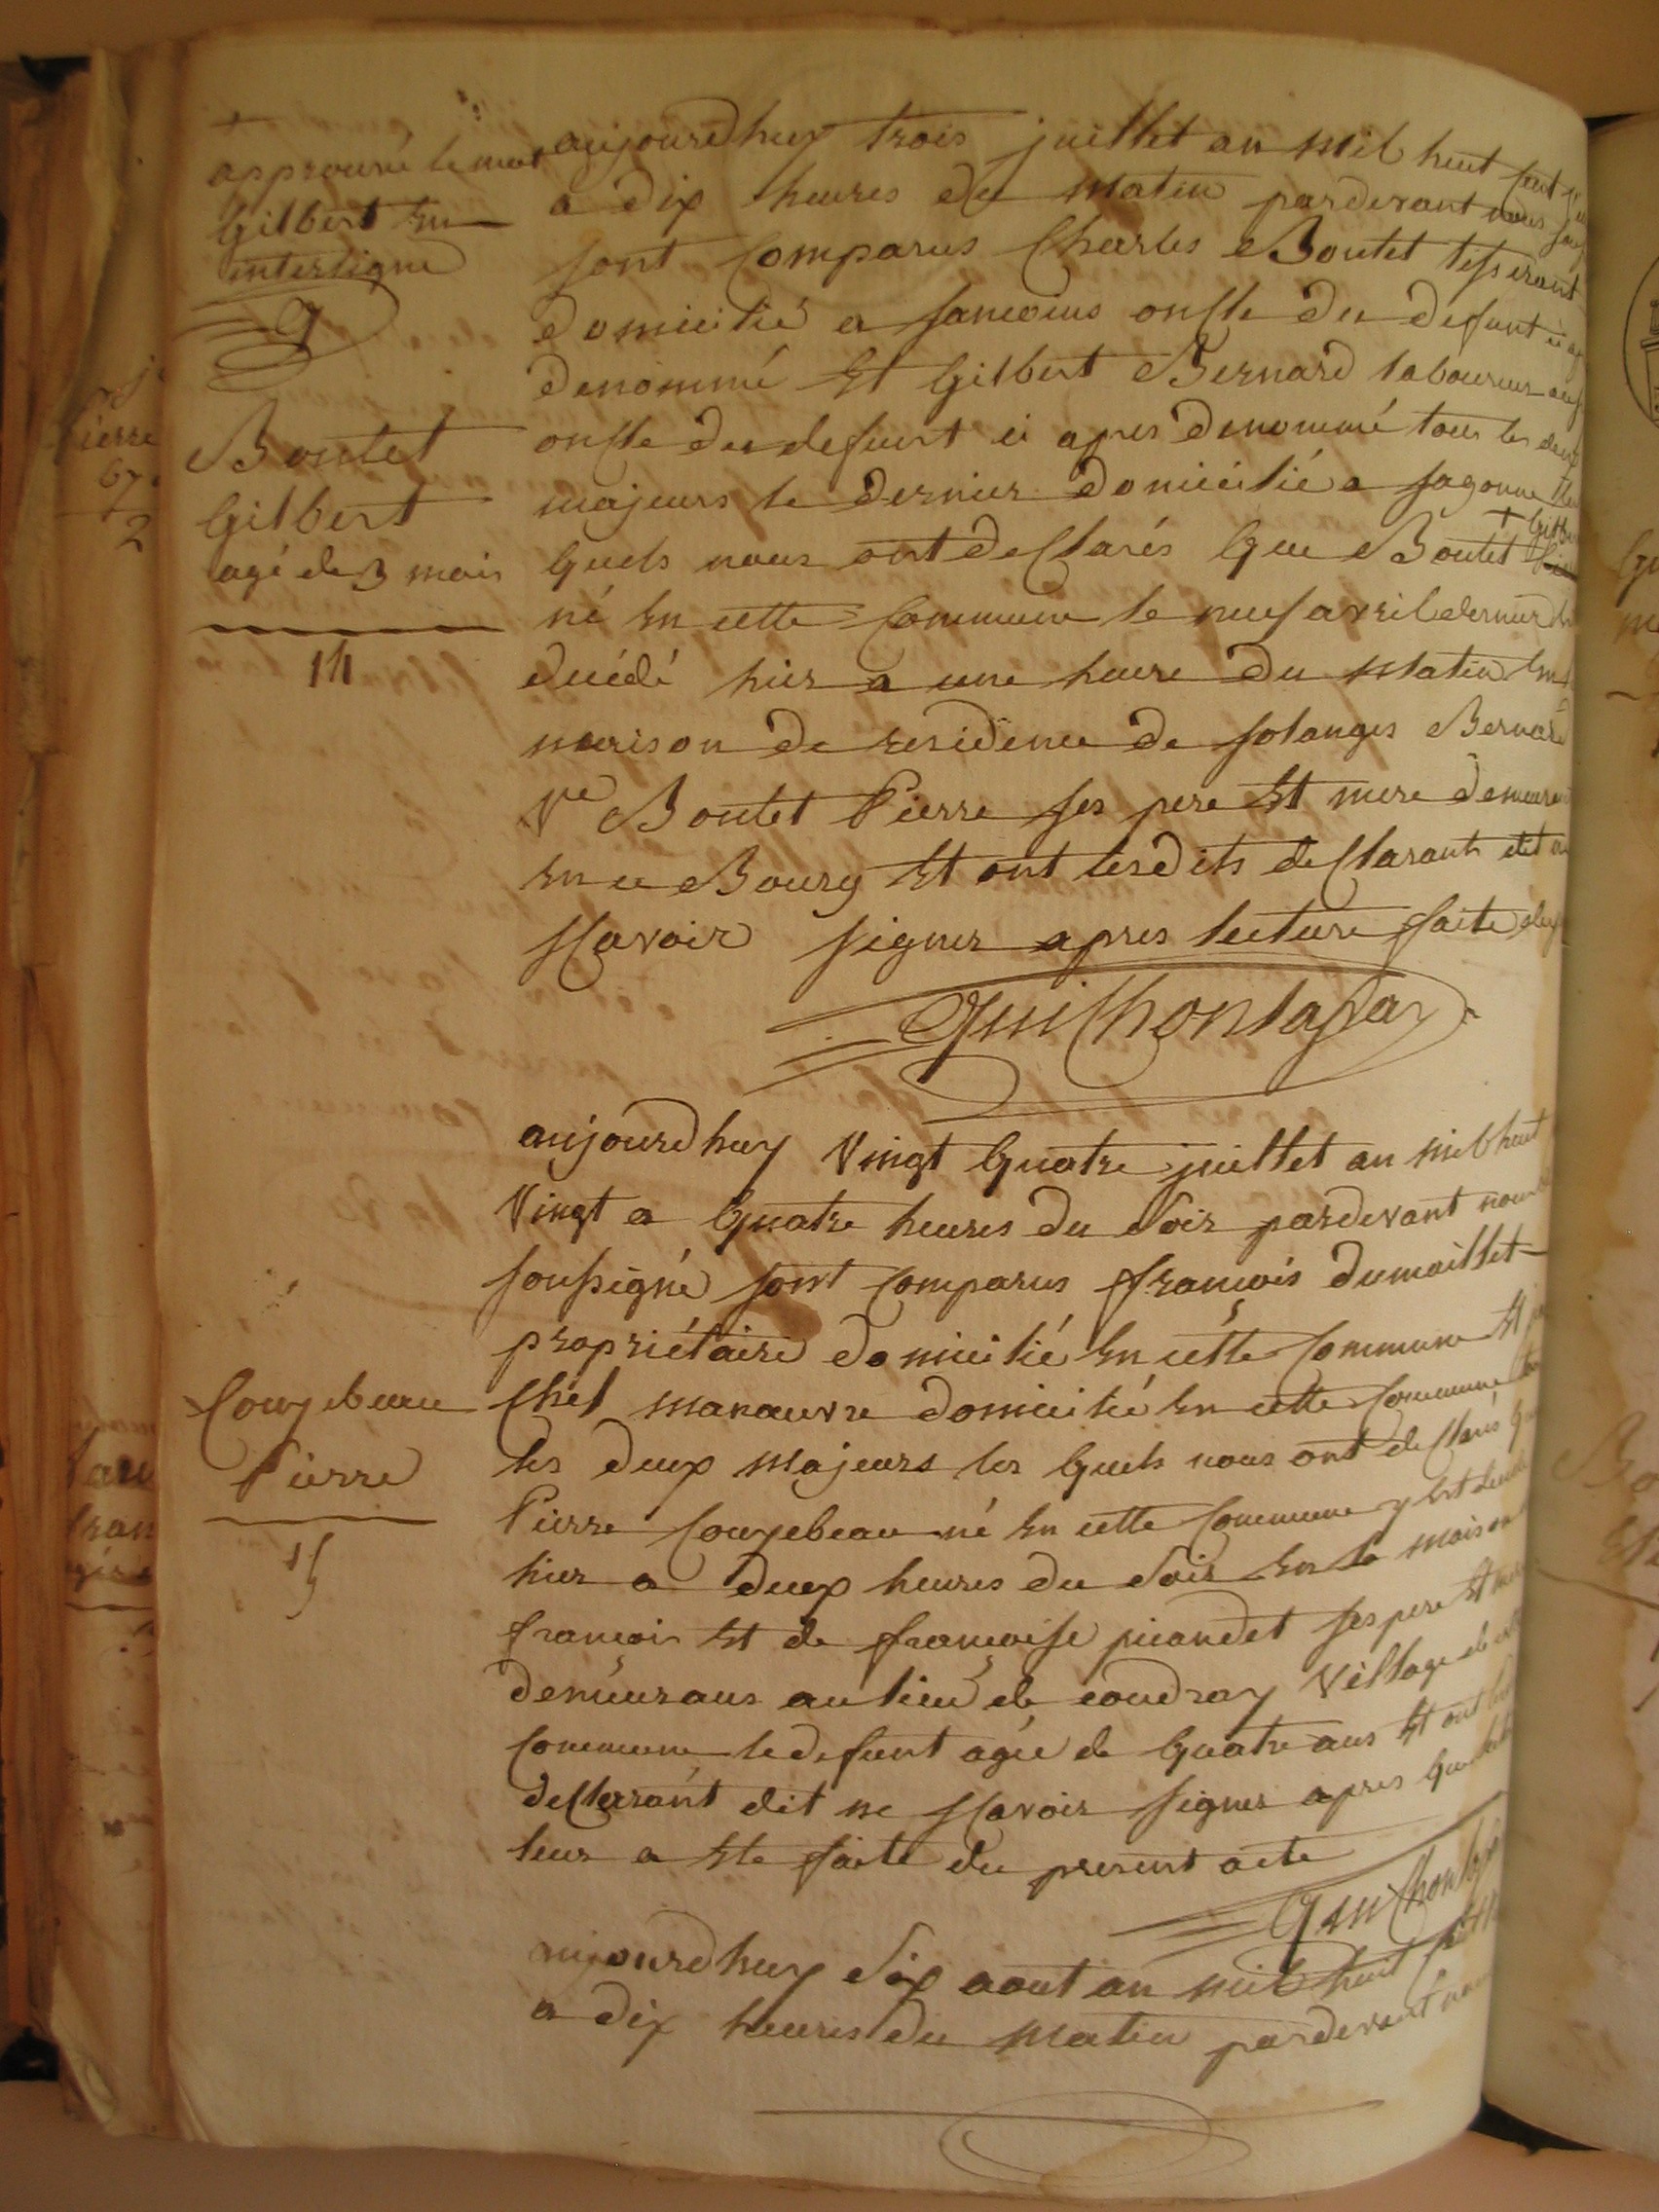 approuvé le mot
Gilbert En
interligne
Boutet
Gilbert
agé de 3 mois
14
aujourdhuy trois juillet an mil huit cent
a dix heures du matin pardevant nous
sont comparus Charles Boutet tisserant
domicilié a sancoins oncle du defunt ci
denommé Et Gilbert Bernard laboureur
oncle du defunt ci apres denommé tous les deux
majeurs le dernier domicilié a sagonne
quels nous ont desclarés que Boutet
né En cette Commune le neuf avril dernier
decédé hier a une heure du Matin En
maison de residence de solanges Bernard
Ve Boutet Pierre ses pere Et mere
En ce Bourg Et ont lesdits desclarants dit
scavoir signer apres lecture faite
aujourdhuy Vingt quatre juillet an mil huit
Vingt a quatre heures du Soir pardevant nous
soussigné sont comparus francois dumaillet
propriétaire domicilié En cette Commune Et
manœuvre domicilié En cette Commune
les deux Majeurs les quels nous ont desclarés
Couzebeau
Pierre
15
Pierre Couzebeau né En cette Commune y Est
hier a deux heures du Soir En la maison
francois Et de francoise picandet ses pere Et
demeurans au lieu de coudray Village de
Commune le defunt agée de quatre ans Et ont
desclarant dit ne scavoir signer apres
leur a Ete faite du present acte
aujourdhuy Six aout an mil huit cent
a dix heures du Matin pardevant